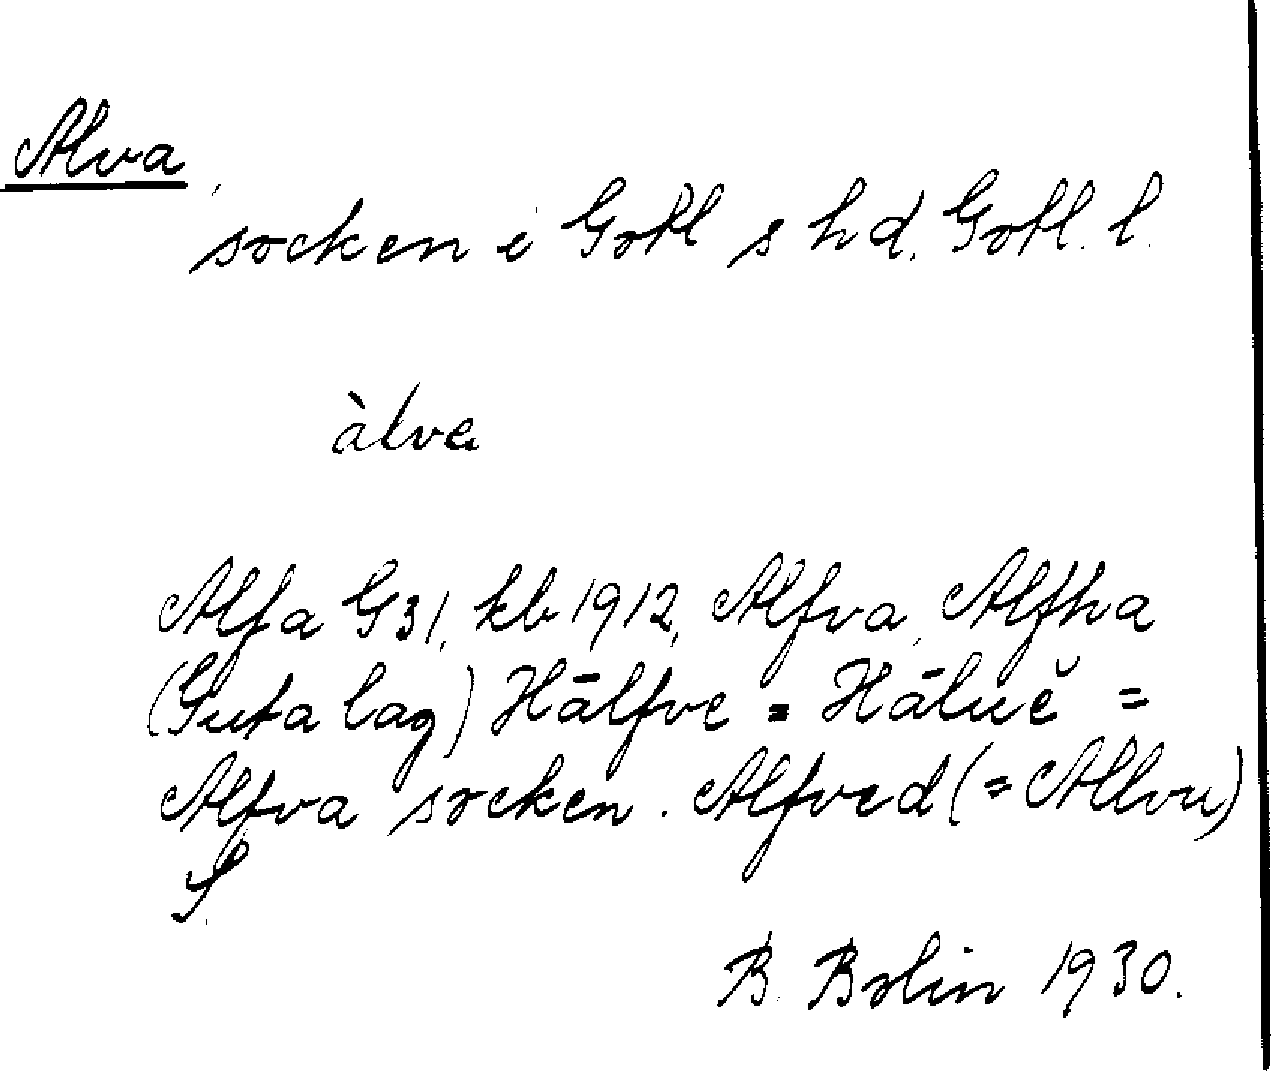 Alva,
socken i Gotl s hd. Gotl. l.
àlva
Alfa G31, kb 1912, Alfva, Alfhva
(Guta lag) Hālfve = Hāluĕ =
Alfva socken. Alfved (= Allvu)
S.
B. Bolin 1930.